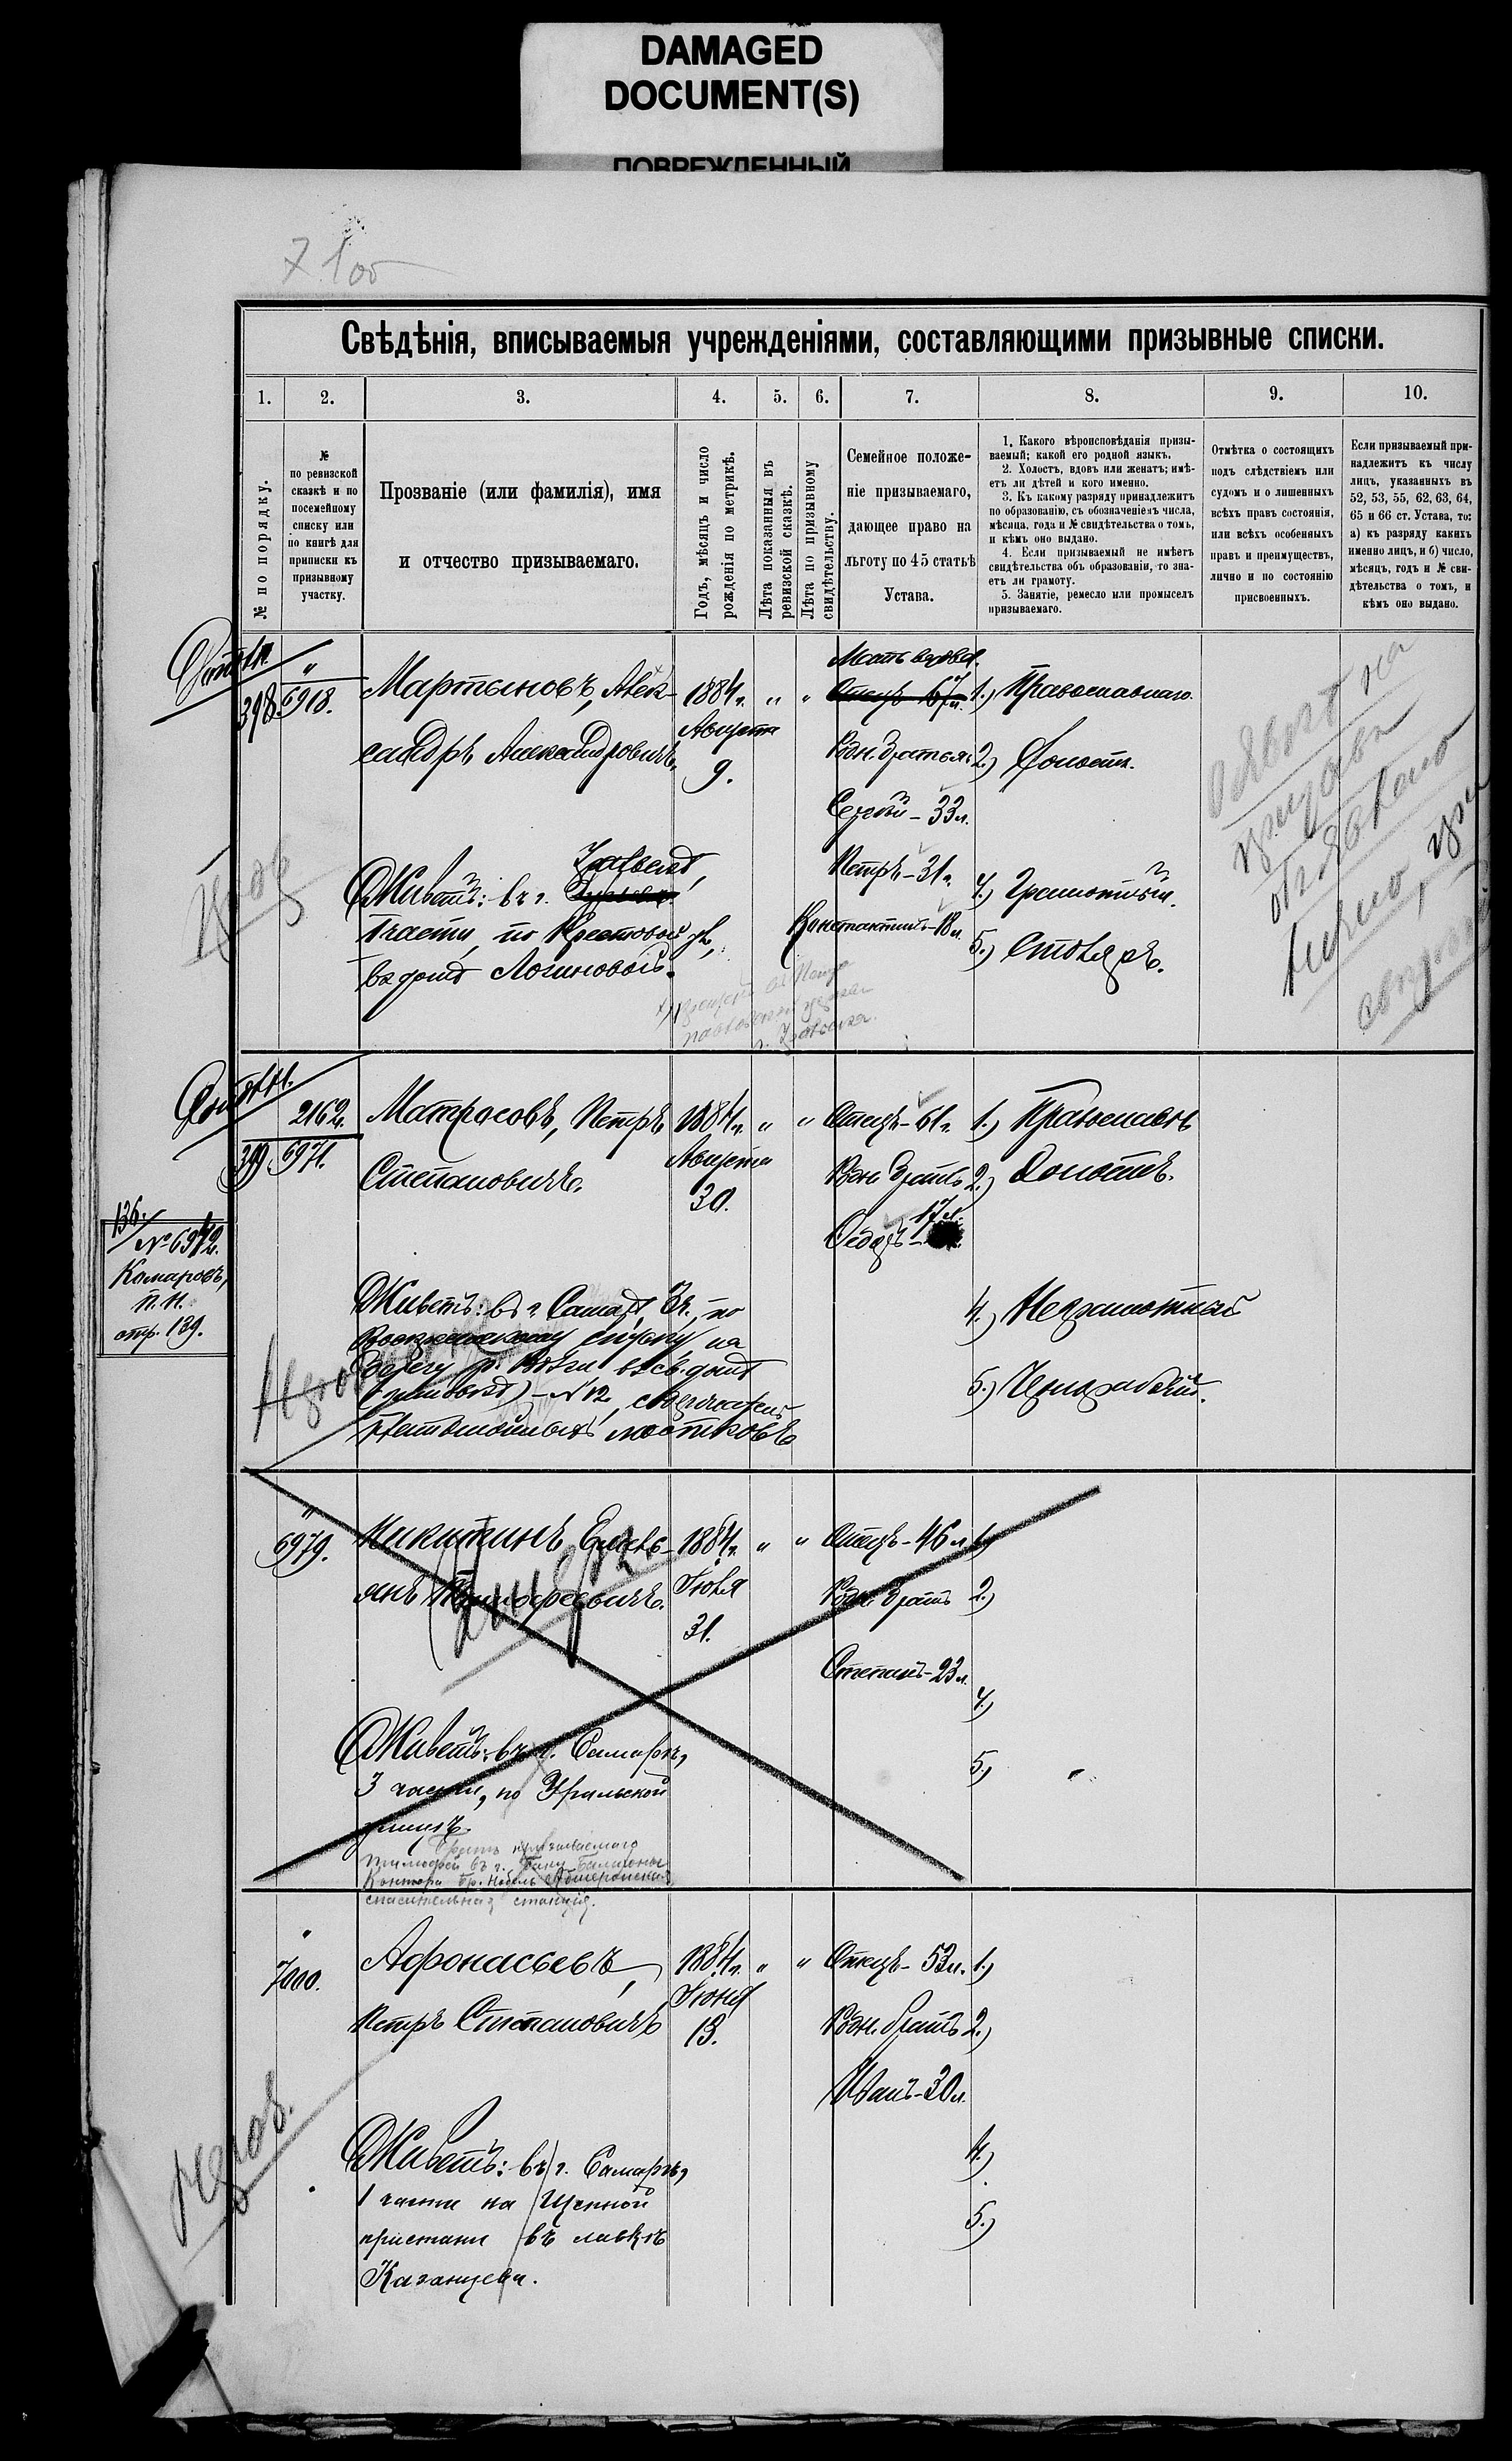 DAMAGED
DOCUMENT(S)
ПОВРЕЖДЕННЫЙ
Свѣдѣнія, вписываемыя учрежденіями, составляющими призывные списки.
1. 2. 3. 4. 5. 6. 7. 8. 9. 10.
№ по порядку.
№
по ревизской
сказкѣ и по
посемейному
списку или
по книгѣ для
приписки къ
призывному
участку.
Прозваніе (или фамилія), имя
и отчество призываемаго.
Годъ, мѣсяцъ и число
рожденія по метрикѣ.
Лѣта показанныя въ
ревизской сказкѣ.
Лѣта по призывному
свидѣтельству.
Семейное положе-
ніе призываемаго,
дающее право на
льготу по 45 статьѣ
Устава.
1. Какого вѣроисповѣданія призы-
ваемый; какой его родной языкъ.
2. Холостъ, вдовъ или женатъ; имѣ-
етъ ли дѣтей и кого именно.
3. Къ какому разряду принадлежитъ
по образованію, съ обозначеніемъ числа,
мѣсяца, года и № свидѣтельства о томъ,
и кѣмъ оно выдано.
4. Если призываемый не имѣетъ
свидѣтельства объ образованіи, то зна-
етъ ли грамоту.
5. Занятіе, ремесло или промыселъ
призываемаго.
Отмѣтка о состоящихъ
подъ слѣдствіемъ или
судомъ и о лишенныхъ
всѣхъ правъ состоянія,
или всѣхъ особенныхъ
правъ и преимуществъ,
лично и по состоянію
присвоенныхъ.
Если призываемый при-
надлежитъ къ числу
лицъ, указанныхъ въ
52, 53, 55, 62, 63, 64,
65 и 66 ст. Устава, то:
а) къ разряду какихъ
именно лицъ, и б) число,
мѣсяцъ, годъ и № сви-
дѣтельства о томъ, и
кѣмъ оно выдано.
398. " 6918.
Мартыновъ, Алек-
сандръ Александровичъ.
1884 г.
Августа
9.
" "
Мать вдова.
Отецъ 67 л.
Родн. братья:
Сергѣй - 33 л.
Петръ - 31 г.
Константинъ - 18 л.
1.) Православнаго.
2.) Холостъ.
4.) Грамотный.
5.) Столяръ.
Живетъ: въ г.
1 части, по Крестовой ул.,
въ домѣ Логиновой.
399. 2162. 6971.
Матросовъ, Петръ
Степановичъ.
1884 г.
Августа
30.
" "
Отецъ - 61 г.
Родн. братъ
Ѳедоръ - 17 л.
1.) Православн
2.) Холостъ.
4.) Неграмотный
5.) Чернорабочій.
136.
№ 6972.
Комаровъ,
П. И.
стр. 139.
Живетъ: въ г. Самарѣ, 3 ч., по
Вознесенскому спуску, на
берегу р. Волги въ св. домѣ
№ 12,
мостковъ
" 6979.
Никитинъ Емель-
янъ Тимофеевичъ.
1884 г.
Іюля
31.
" "
Отецъ - 46 л.
Родн. братъ
Степанъ - 23 л.
1.)
2.)
4.)
5.)
Живетъ: въ г. Самарѣ,
3 части, по Уральской
улицѣ.
Братъ призываемаго
Тимофей въ г. Баку Балаханы
Контора Бр. Нобель Апшеронская
спасительная станція.
" 7000.
Афонасьевъ,
Петръ Степановичъ
1884 г.
Іюня
13.
" "
Отецъ - 53 л.
Родн. братъ
Иванъ - 30 л.
1.)
2.)
4.)
5.)
Живетъ: въ г. Самарѣ,
1 части на Щепной
пристани въ лавкѣ
Казанцева.